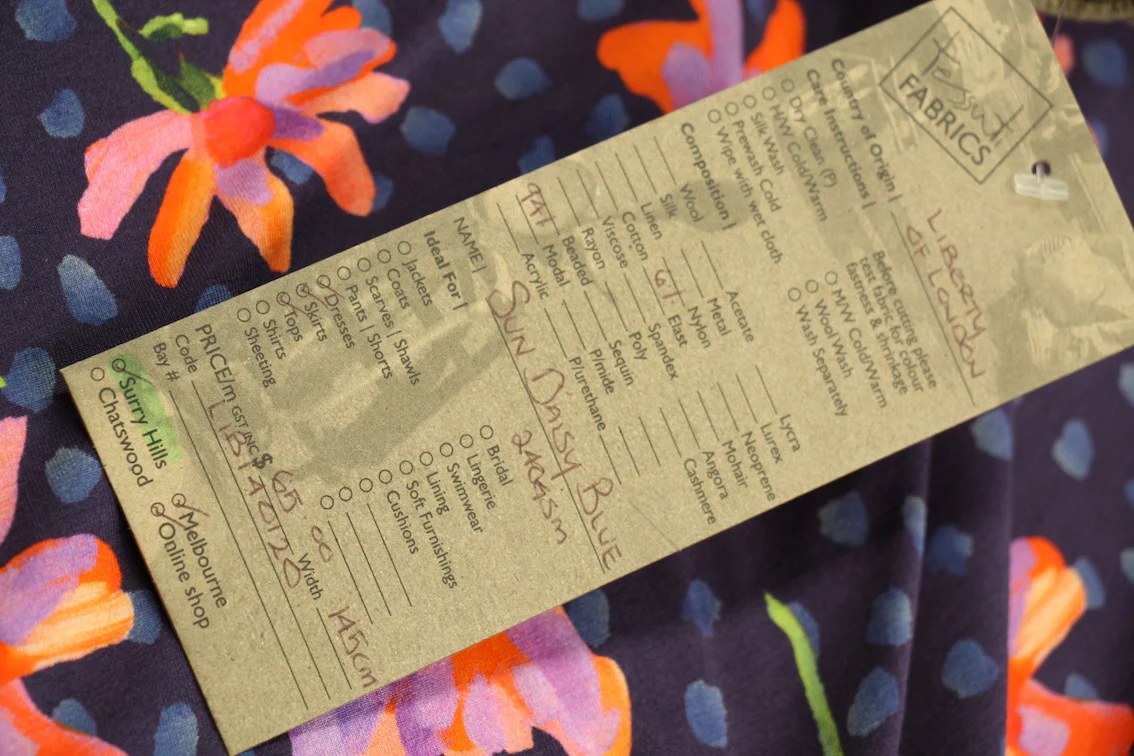 Tessuti
FABRICS
Country of Origin | LIBERTY
OF LONDON
Care Instructions |
Before cutting please
test fabric for colour
fastness & shrinkage
Dry Clean (P)
H/W Cold/Warm
Silk Wash
Prewash Cold
Wipe with wet cloth
M/W Cold/Warm
Wool Wash
Wash Separately
Composition |
Wool
Silk
Linen
94% Cotton
Viscose
Rayon
Beaded
Modal
Acrylic
Acetate
Metal
Nylon
6% Elast
Spandex
Poly
Sequin
P/mide
P/urethane
Lycra
Lurex
Neoprene
Mohair
Angora
Cashmere
NAME | SUN DAISY BLUE
240GSM
Ideal For |
Jackets
Coats
Scarves | Shawls
Pants | Shorts
Dresses
Skirts
Tops
Shirts
Sheeting
Bridal
Lingerie
Swimwear
Lining
Soft Furnishings
Cushions
PRICE/m GST INC $ 65.00 Width 145cm
Code
Bay #
Surry Hills
Chatswood
Melbourne
Online shop